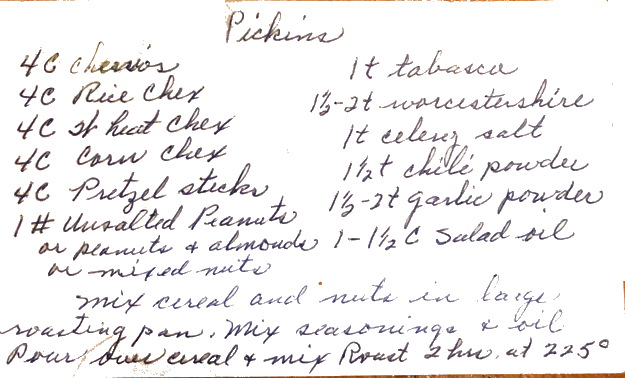 Pickins
4C cheerios
4C Rice Chex
4C Wheat Chex
4C Corn Chex
4C Pretzel sticks
1# Unsalted Peanuts
or peanuts & almonds
or mixed nuts
1t tabasco
1½-2t worcestershire
1t celery salt
1½t chili powder
1½-2t garlic powder
1-1½ C Salad oil
Mix cereal and nuts in large
roasting pan. Mix seasonings & oil
Pour over cereal & mix Roast 2 hrs. at 225°